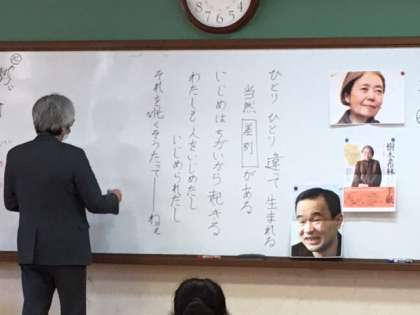 ひとりひとり違って生まれる
当然差別がある
いじめはちがいから起きる
わたしも人をいじめたし
いじめられたし
それを呪くそうたって――ねぇ
樹木希林